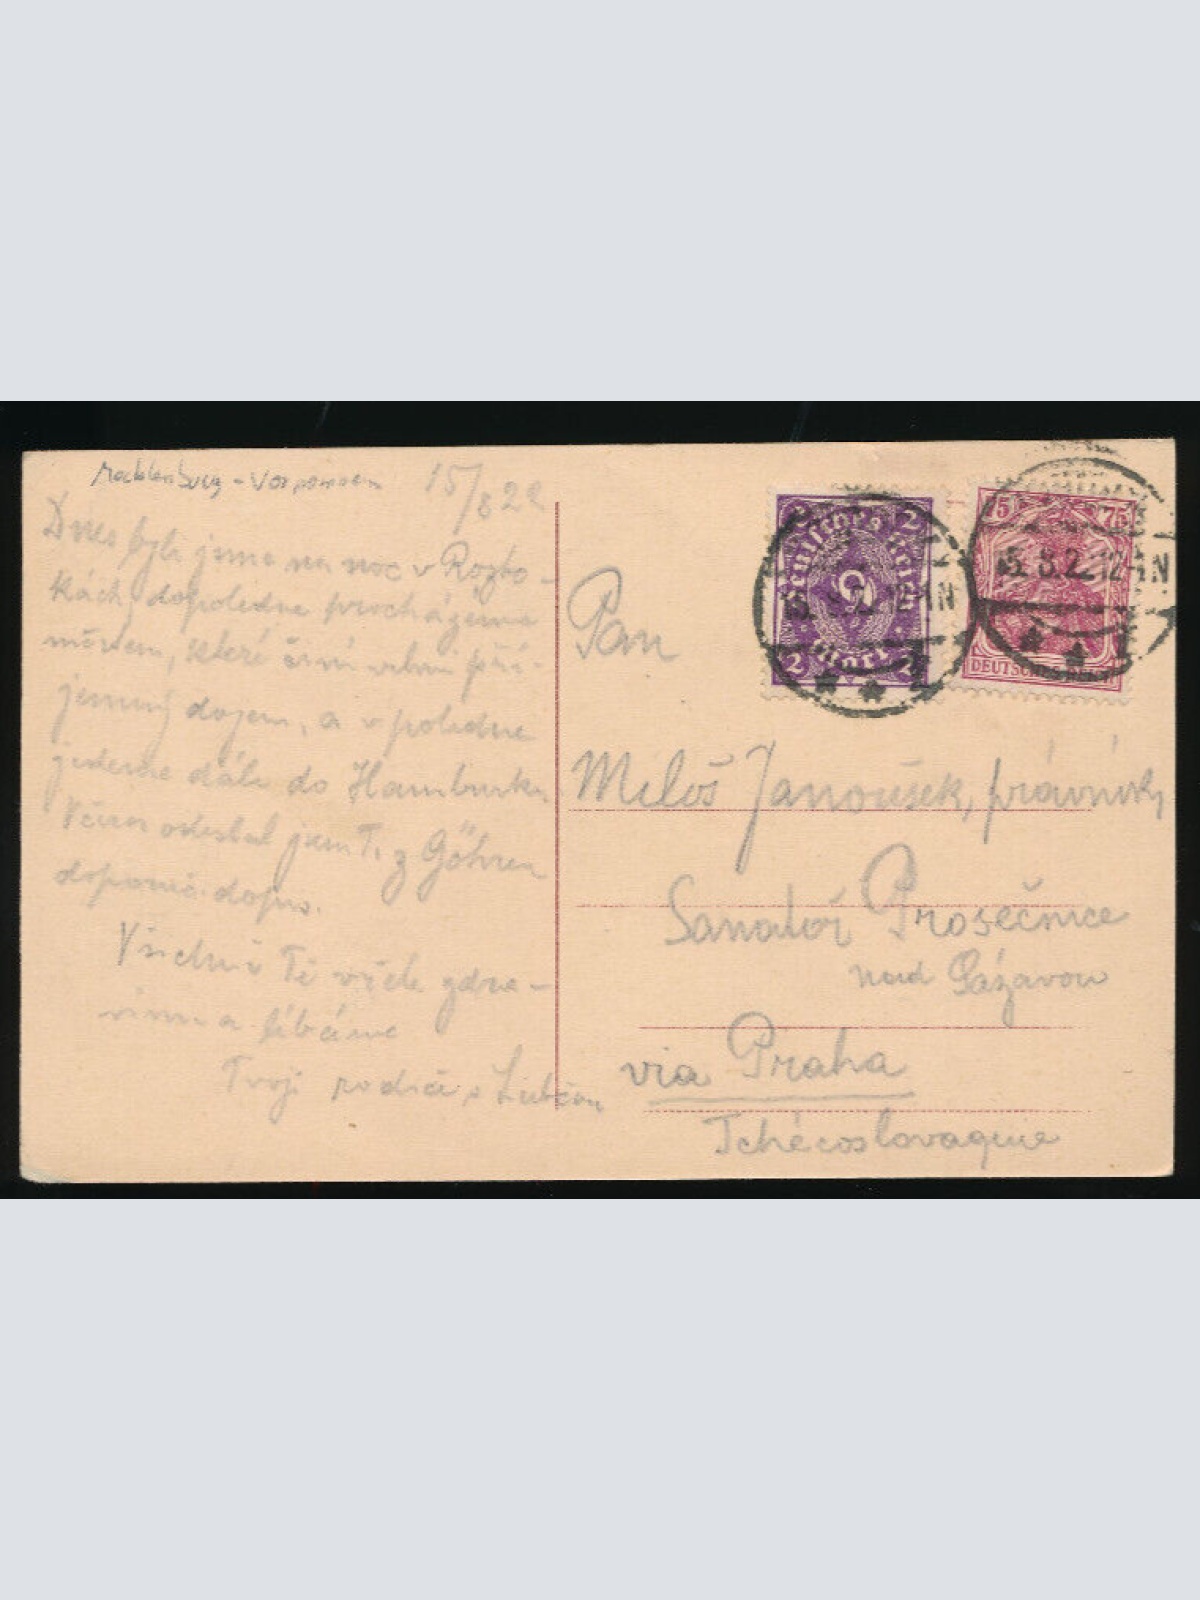 Mecklenburg - Vorpommern
15/8 22
Dnes byli jsme na noc v Rozto-
kách, dopoledne procházíme
městem, které činí velmi pří-
jemný dojem, a v poledne
jedeme dále do Hamburku
Včera odeslal jsem Ti z Göhren
doporuč. dopis.
Všichni Tě vřele zdra-
víme a líbáme
Tvoji rodiče s
Pan
Miloš Janoušek, právník,
Sanatoř Prosečnice
nad Sázavou
via Praha
Tchécoslovaquie
2 2
Deutsches Reich
2
2 Mark 2
75 75
DEUTSCHES REICH
15.8.22 12-1N